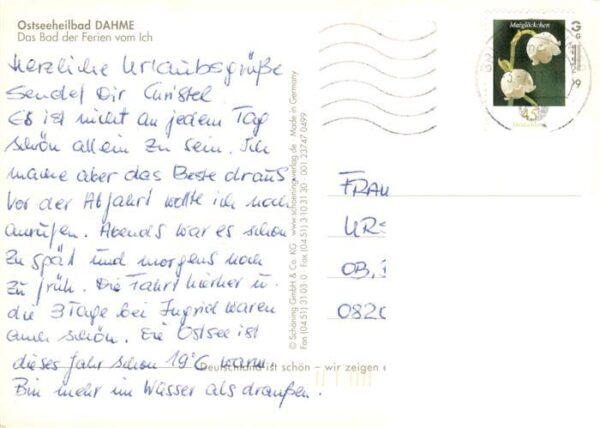 Ostseeheilbad DAHME
Das Bad der Ferien vom Ich
Herzliche Urlaubsgrüße
sendet Dir Christel
Es ist nicht an jedem Tag
schön allein zu sein. Ich
mache aber das Beste draus
Vor der Abfahrt wollte ich noch
anrufen. Abends war es schon
zu spät und morgens noch
zu früh. Die Fahrt hierher u.
die 3 Tage bei Ingrid waren
auch schön. Die Ostsee ist
dieses Jahr schon 19°C warm
Bin mehr im Wasser als draußen.
© Schöning GmbH & Co. KG · www.schoeningverlag.de · Made in Germany
Fax (04 51) 31 03 0 · Fax (04 51) 3 10 31 30 · 001 23747 0499
Deutschland ist schön – wir zeigen
Maiglöckchen
45
Deutschland
FRAU
URS
OB.
082